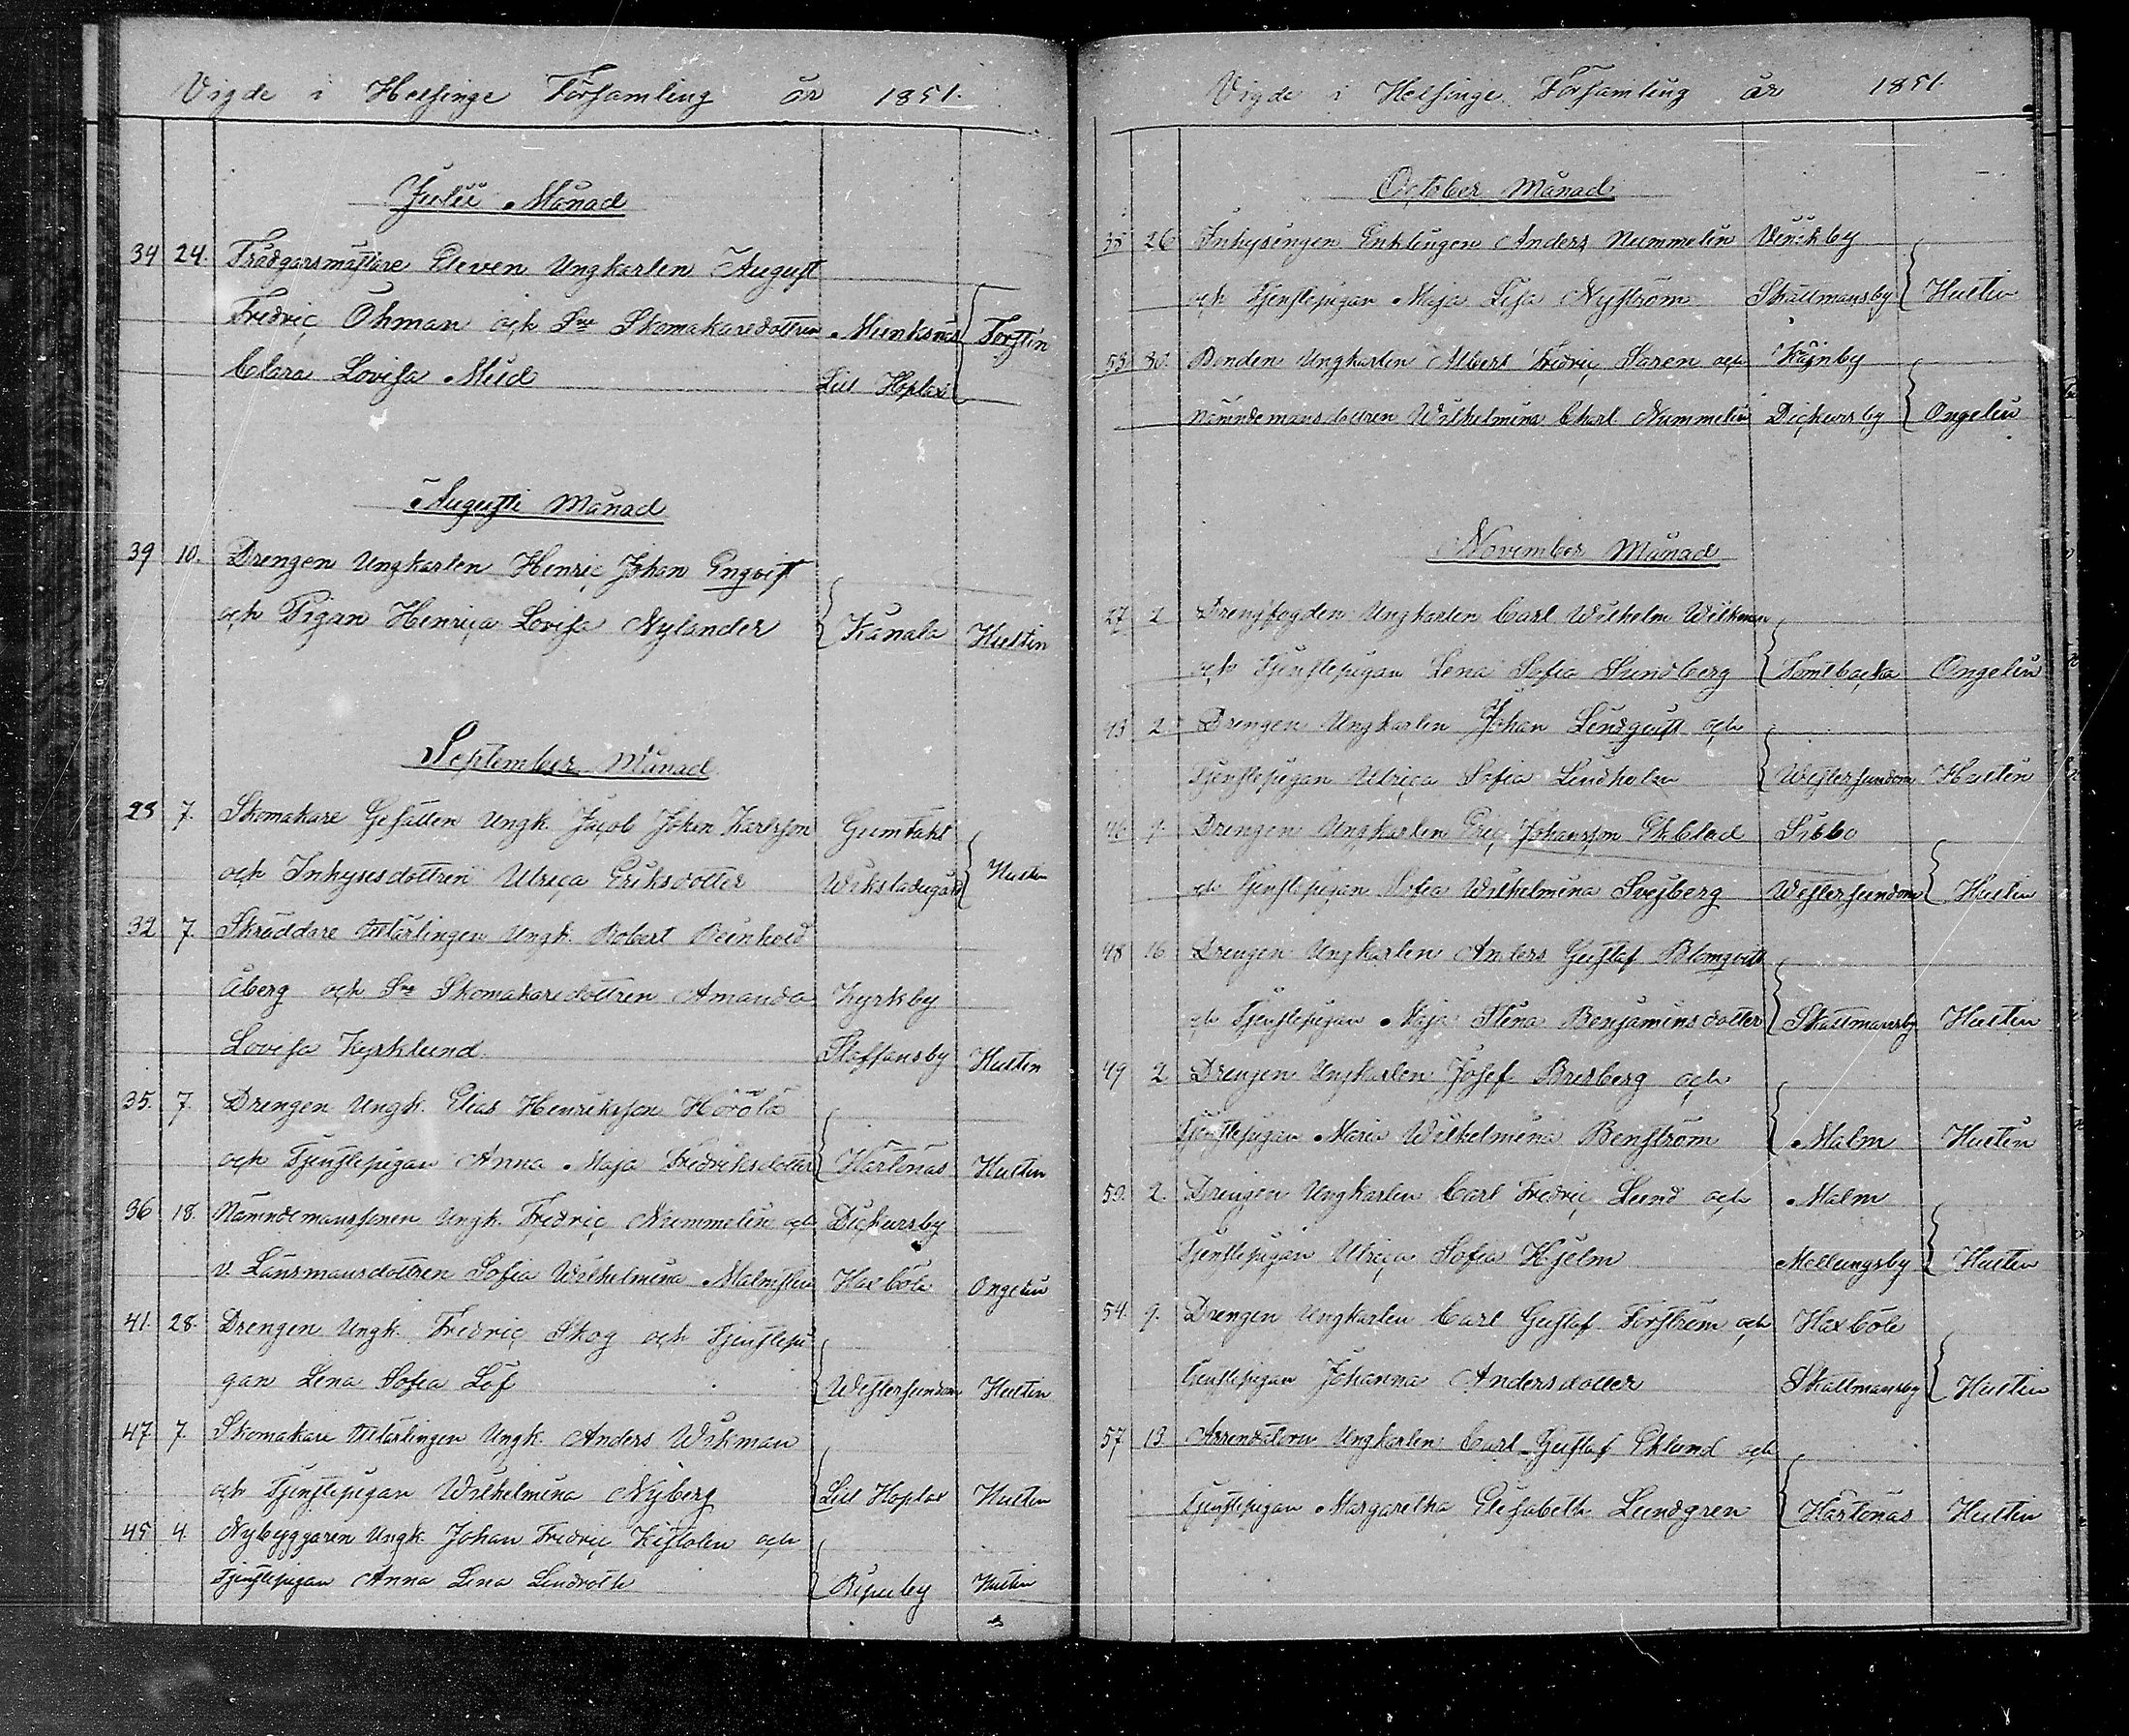 Vigde i Helsinge Församling år 1851.
Julii Månad
34 24. Trädgårsmästare Eleven Ungkarlen August
Fredric Öhman och Sne Skomakaredottren Munksnäs Forstin
Clara Lovisa Mild Lill Hoplax
Augusti Månad
39 10. Drengen Ungkarlen Henric Johan Engvist
och Pigan Henrica Lovisa Nylander Kånala Hultin
September Månad
23 7. Skomakare Gesällen Ungk. Jacob Johan Karlsson Gumtäkt
och Inhysesdottren Ulrica Eriksdotter Wikstadsgård Hultin
32 7. Skräddare Utlärlingen Ungk. Robert Reinhold
Åberg och Sne Skomakaredottren Amanda Kyrkby
Lovisa Kyrklund Staffansby Hultin
35. 7. Drengen Ungk. Elias Henriksson Hörölä
och Tjenstepigan Anna Maja Fredriksdotter Hårtonäs Hultin
36 18. Nämndemanssonen Ungk. Fredric Nummelin och Dickursby
v. Länsmansdottren Sofia Wilhelmina Malmsten Haxböle Ongelin
41. 28. Drengen Ungk. Fredric Skog och Tjenstepi
gan Lena Sofia Löf Westersundom Hultin
47. 7. Skomakare Utlärlingen Ungk. Anders Wikman
och Tjenstepigan Wilhelmina Nyberg Lill Hoplax Hultin
45 4. Nybyggaren Ungk. Johan Fredric Kistolin och
Tjenstepigan Anna Lena Lindroth Ripuby Hultin
Vigde i Helsinge Församling år 1851.
October Månad
38 26 Inhysingen Enklingen Anders Nummelin Vinikby
och Tjenstepigan Maja Lisa Nyström Skattmansby Hultin
53 30. Bonden Ungkarlen Albert Fredric Saren och Käinby
Nämndemansdottren Wilhelmina Charl. Nummelin Dickursby Ongelin
November Månad
27 2 Drengfogden Ungkarlen Carl Wilhelm Wikman
och Tjenstepigan Lena Sofia Sundberg Tomtbacka Ongelin
43 2 Drengen Ungkarlen Johan Lindquist och
Tjenstepigan Ulrica Sofia Lindholm Westersundom Hultin
46 9. Drengen Ungkarlen Eric Johansson Ekblad Sibbo
och Tjenstepigan Sofia Wilhelmina Sveiberg Westersundom Hultin
48 16 Drengen Ungkarlen Anders Gustaf Blomqvist
och Tjenstepigan Maja Stina Benjaminsdotter Skattmansby Hultin
49 2 Drengen Ungkarlen Josef Bresberg och
Tjenstepigan Maria Wilhelmina Benström Malm Hultin
50. 2. Drengen Ungkarlen Carl Fredric Lund och Malm
Tjenstepigan Ulrica Sofia Hjelm Mellungsby Hultin
54. 9. Drengen Ungkarlen Carl Gustaf Forström och Haxböle
Tjenstepigan Johanna Andersdotter Skattmansby Hultin
57 13 Arrendatorn Ungkarlen Carl Gustaf Eklund och
Tjenstepigan Margaretha Elisabeth Lundgren Hårtonäs Hultin